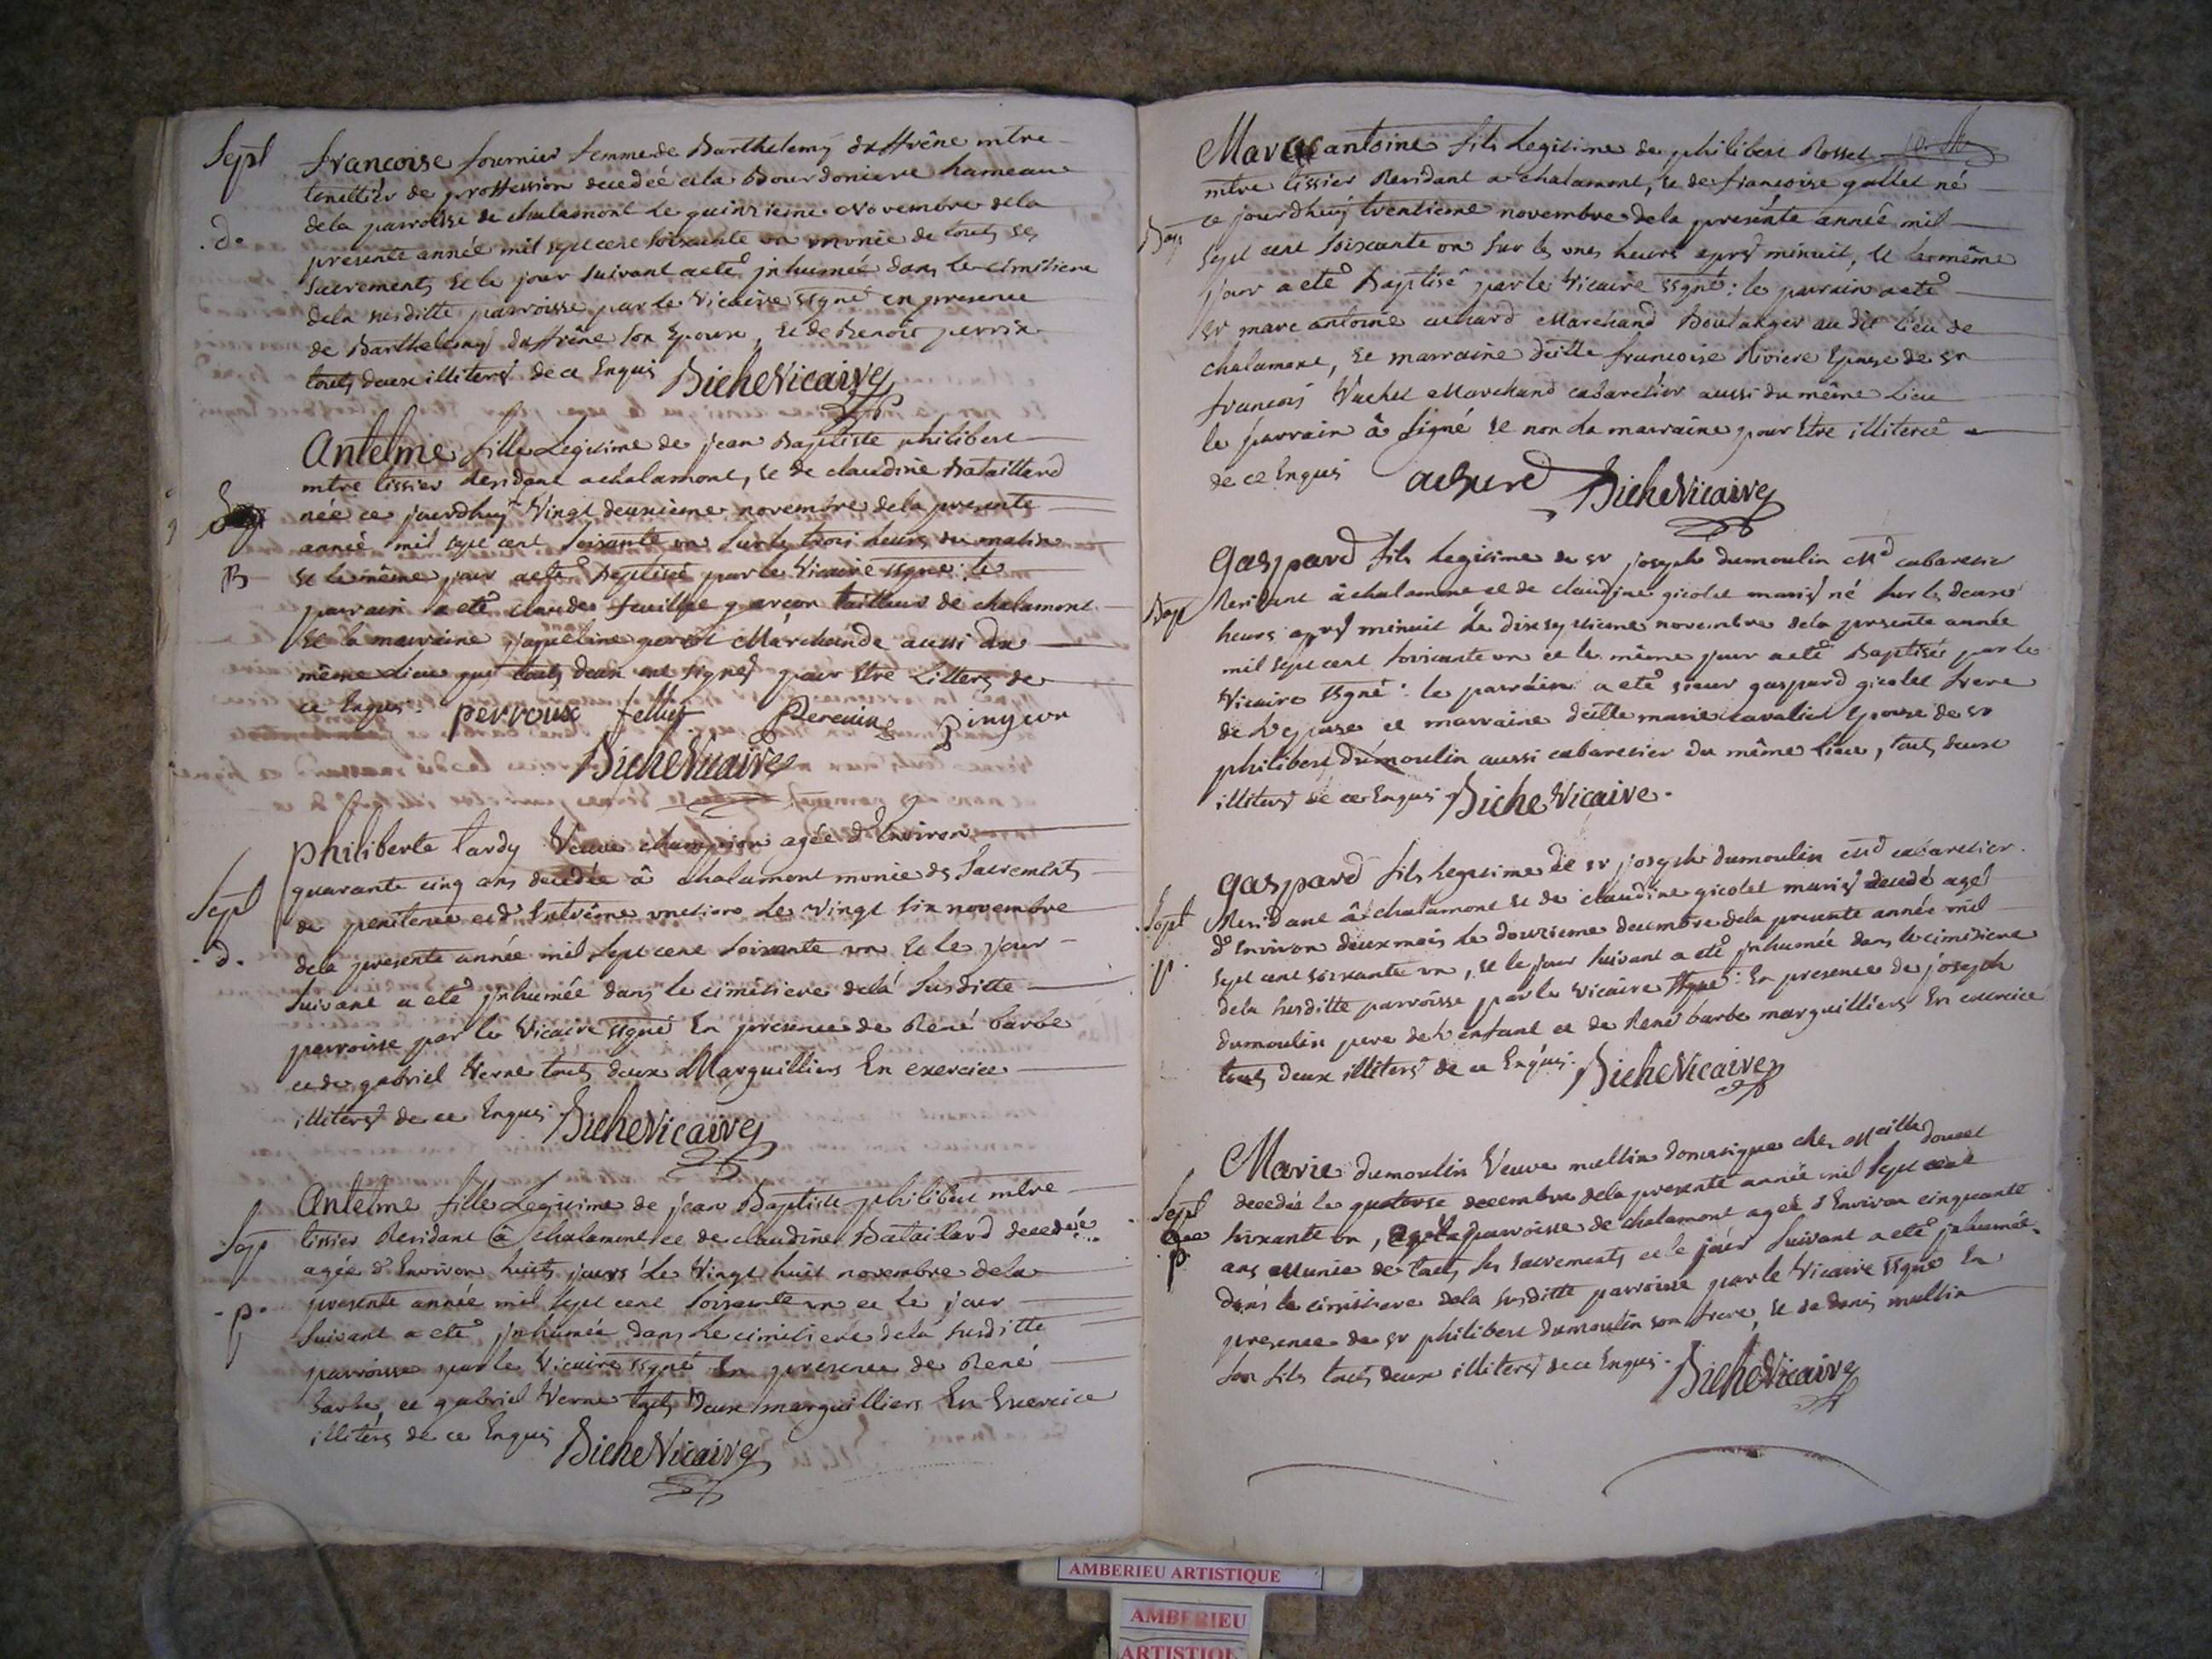 Sept
francoise fournier femme de Barthelemy duffrêne mtre
tonellier de proffession decedeé a la Bourdoniere hameau
. d.
dela parroisse de chalamont Le quinzieme Novembre dela
presente anneé mil sept cent soixante un munie de touts ses
sacrements et le jour suivant aeté jnhumeé dans le cimitiere
dela susditte parroisse par le vicaire ssgné en presence
de Barthelemy duffrêne son Epoux, et de Benoit perrix
touts deux illiters de ce Enquis Biche Vicaire
Antelme fille Legitime de jean Baptiste philibert
mtre tissier Residant achalamont, et de claudine Bataillard
neé ce jourdhuy Vingt deuxieme novembre dela presente
anneé mil sept cent soixante un sur les trois heures du matin
B
et le même jour aeté Baptiseé par le Vicaire ssgné : le
parrain a eté claude garcon tailleur de chalamont
Et la marraine Marchande aussi du
même Lieu qui touts deux ont signes pour Etre Litters de
ce Enquis. perroux Perruin pingeon
Biche Vicaire
philiberte tardy Veuve champion ageé d'Environ
quarante cinq ans decedeé â chalamont munie des Sacrements
Sept
de penitence et d'Extrême onction Le vingt six novembre
. d.
dela presente anneé mil sept cent soixante un Et le jour
suivant a eté jnhumeé dans le cimitiere dela susditte
parroisse par le Vicaire ssgné En presence de René barbe
et de gabriel Verne touts deux Marguilliers En exercice
illiters de ce Enquis Biche Vicaire
Antelme fille Legitime de jean Baptiste philibert mtre
Sep
tissier Residant â Chalamont et de claudine Bataillard decedeé
ageé d'Environ huits jours Le Vingt huit novembre dela
. p.
presente anneé mil sept cent soixante un et le jour
suivant a eté jnhumeé dans Le cimitiere dela susditte
parroisse par le Vicaire ssgné En presence de René
barbe, et gabriel Verne touts deux marguilliers En Exercice
illiters de ce Enquis Biche Vicaire
Marc antoine fils Legitime de philibert Rosset
mtre tissier Residant a chalamont, et de francoise gallet né
ce jourdhuy trentieme novembre dela presente anneé mil
Bap
sept cent soixante on sur les unes heures apres minuit, et le même
jour a eté Baptisé par le Vicaire ssgné : le parrain aeté
sr marc antoine achard Marchand Boulanger au dit Lieu de
chalamont, et marraine dlle francoise Riviere Epouse de sr
francois Vachet Marchand cabaretier aussi du même Lieu
le parrain â signé et non La marraine pour Etre illitereé
de ce Enquis achard Biche Vicaire
gaspard fils Legitime de sr joseph dumoulin Md cabaretier
Bap
Residant â chalamont et de claudine gicolet mariés né sur les deux
heures apres minuit Le dixseptieme novembre dela presente anneé
mil sept cent soixante un et le même jour aeté Baptisé par le
Vicaire ssgné : le parrain a eté sieur gaspard gicolet frere
de L'epouse et marraine dlle marie cavalier Epouse de sr
philibert dumoulin aussi cabaretier du même Lieu, touts deux
illiters de ce Enquis Biche Vicaire.
gaspard fils Legitime de sr joseph dumoulin Md cabaretier
Sept
Residant â chalamont et de claudine gicolet mariés decedé agé
d'Environ deux mois Le douzieme decembre dela presente anneé mil
p.
sept cent soixante un, et le jour suivant a eté jnhumeé dans le cimitiere
dela susditte parroisse par le vicaire ssgné : En presence de joseph
dumoulin pere de L'enfant et de René barbe marguilliers En exercice
touts deux illiters de ce Enquis. Biche Vicaire
Marie dumoulin Veuve mullin domestique chez Mcille doucet
decedeé le quatorze decembre dela presente anneé mil sept cent
Sept
soixante un, parroisse de chalamont ageé d'Environ cinquante
p.
ans Munie de touts les sacrements et le jour suivant a eté jnhumeé
dans le cimitiere dela susditte parroisse par le Vicaire ssgné En
presence de sr philibert dumoulin son frere, et de denis mullin
son fils touts deux illiters de ce Enquis. Biche Vicaire
AMBERIEU ARTISTIQUE
AMBERIEU
ARTISTIQUE